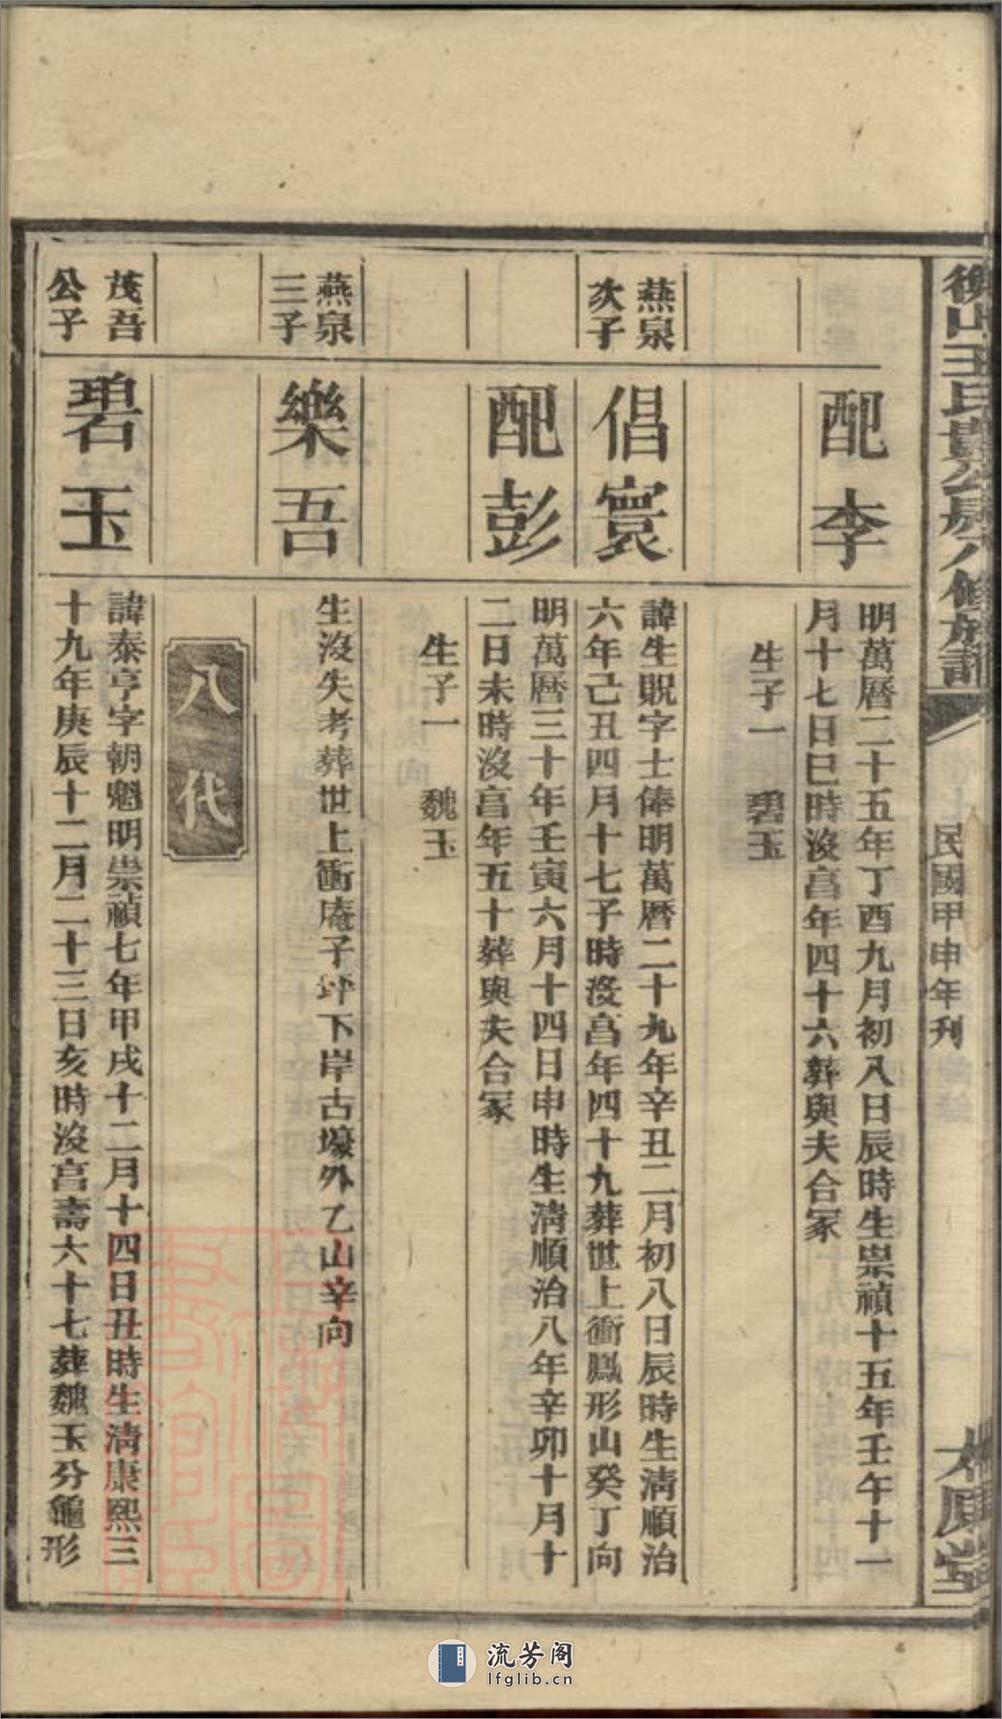 衡山王氏貴公房八修族譜
民國甲申年刊
太原堂
配李
明萬曆二十五年丁酉九月初八日辰時生崇禎十五年壬午十一
月十七日巳時沒亯年四十六葬與夫合冢
生子一　碧玉
燕泉
次子
倡寰
諱生貺字士俸明萬曆二十九年辛丑二月初八日辰時生清順治
六年己丑四月十七子時沒亯年四十九葬世上衝鳳形山癸丁向
配彭
明萬曆三十年壬寅六月十四日申時生清順治八年辛卯十月十
二日未時沒亯年五十葬與夫合冢
生子一　魏玉
燕泉
三子
樂吾
生沒失考葬世上衝庵子坪下岸古壕外乙山辛向
八代
茂吾
公子
碧玉
諱泰亨字朝魁明崇禎七年甲戌十二月十四日丑時生清康熙三
十九年庚辰十二月二十三日亥時沒亯壽六十七葬魏玉分龜形
流芳阁
lfglib.cn